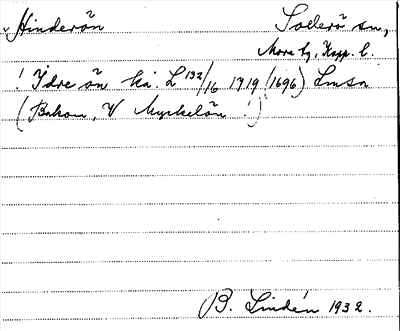 Hinderön Sollerö sn,
Mora tg, Kopp. l.
! Ydre ön ka. L 132/16 1719 (1696) Lmsa
(Bakom, V Myrkelön !)
B. Lindén 1932.